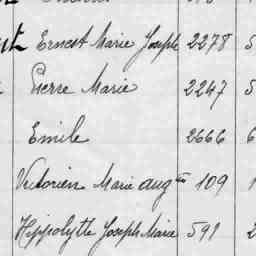 Ernest Marie Joseph 2278 5
Pierre Marie 2247 5
Emile 2666 6
Victorien Marie augte 109 1
Hippolytte Joseph Marie 591 2